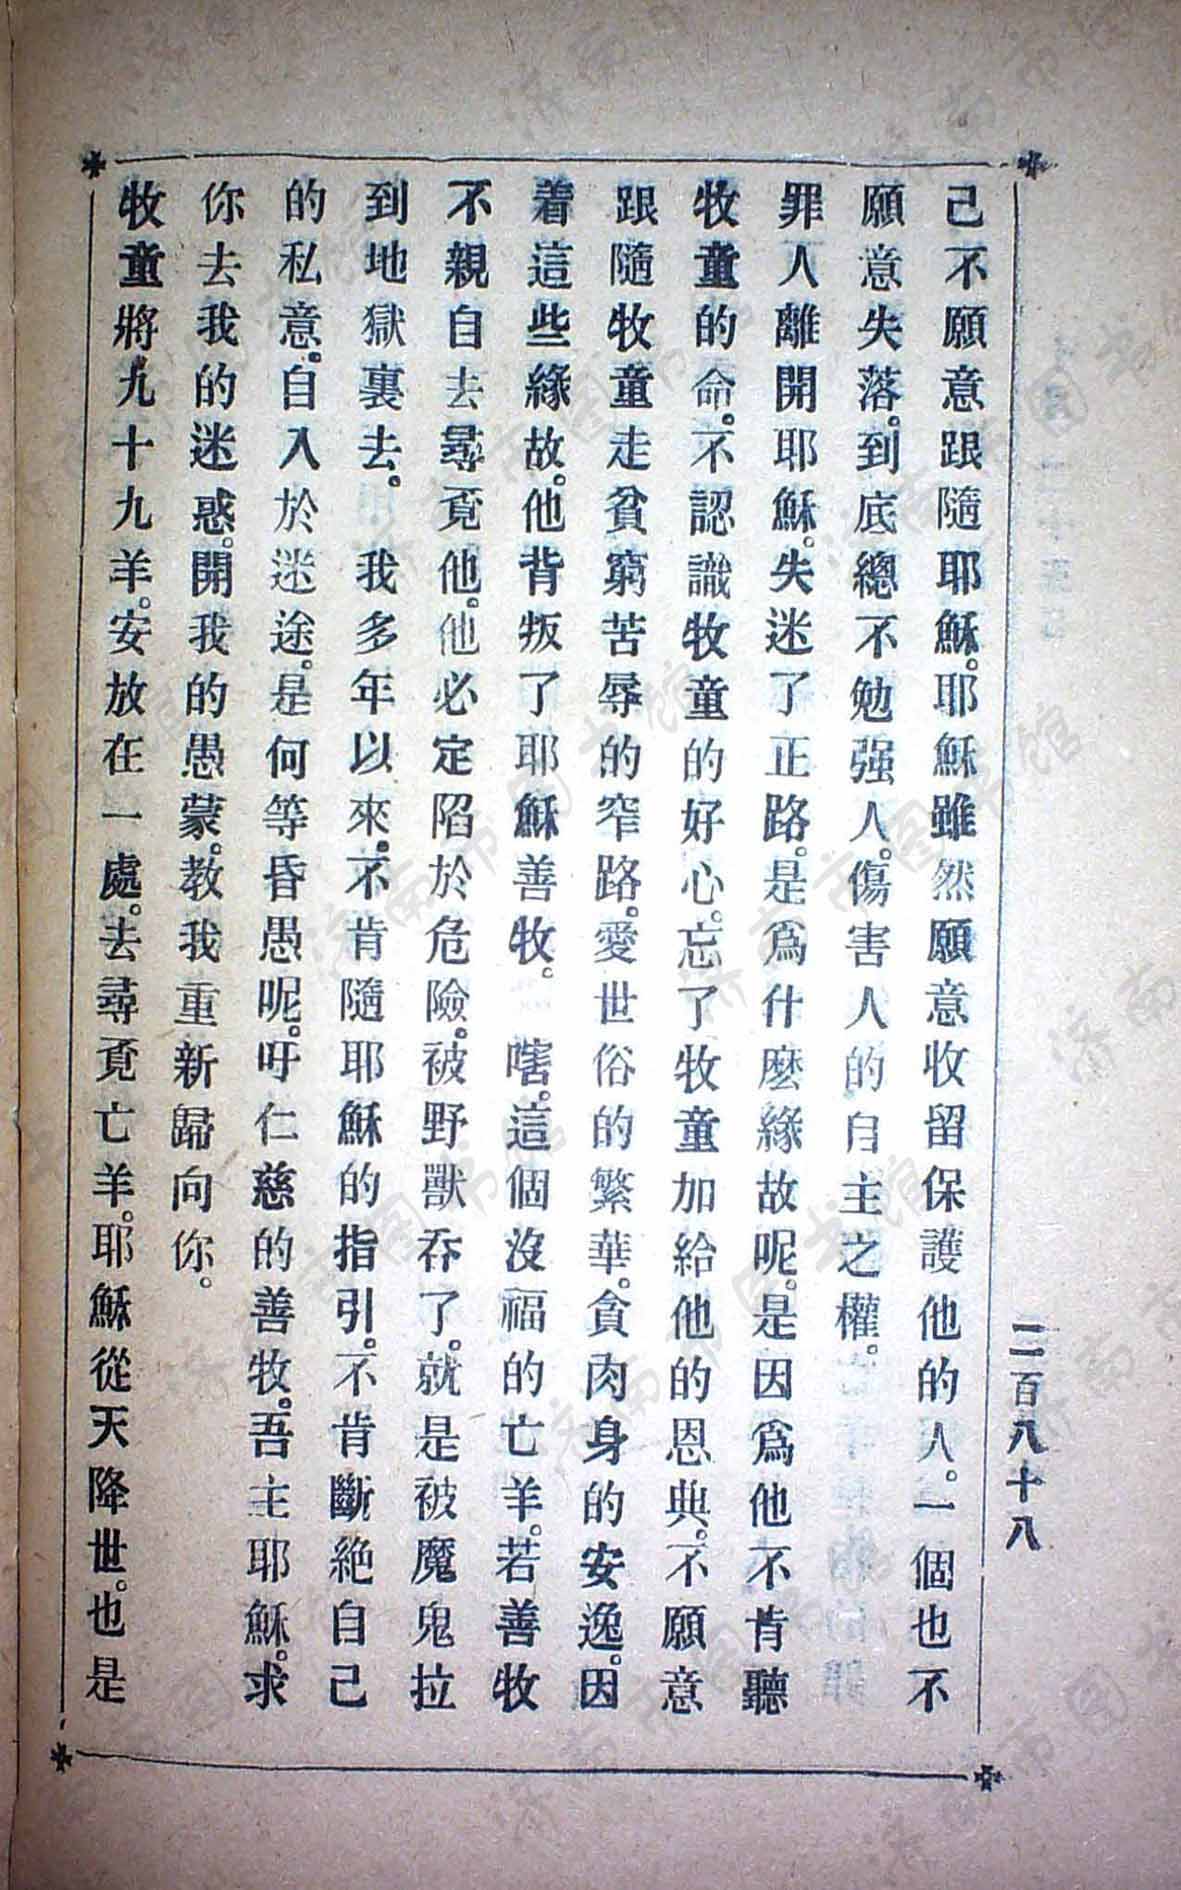 己不願意跟隨耶穌。耶穌雖然願意收留保護他的人。一個也不
願意失落。到底總不勉强人。傷害人的自主之權。
罪人離開耶穌。失迷了正路。是爲什麼緣故呢。是因爲他不肯聽
牧童的命。不認識牧童的好心。忘了牧童加給他的恩典。不願意
跟隨牧童走貧窮苦辱的窄路。愛世俗的繁華。貪肉身的安逸。因
着這些緣故。他背叛了耶穌善牧。 嘻。這個沒福的亡羊。若善牧
不親自去尋覓他。他必定陷於危險。被野獸吞了。就是被魔鬼拉
到地獄裏去。 我多年以來。不肯隨耶穌的指引。不肯斷絶自己
的私意。自入於迷途。是何等昏愚呢。吁仁慈的善牧。吾主耶穌。求
你去我的迷惑。開我的愚蒙。教我重新歸向你。
牧童將九十九羊。安放在一處。去尋覓亡羊。耶穌從天降世。也是
二百八十八
济南市图书馆